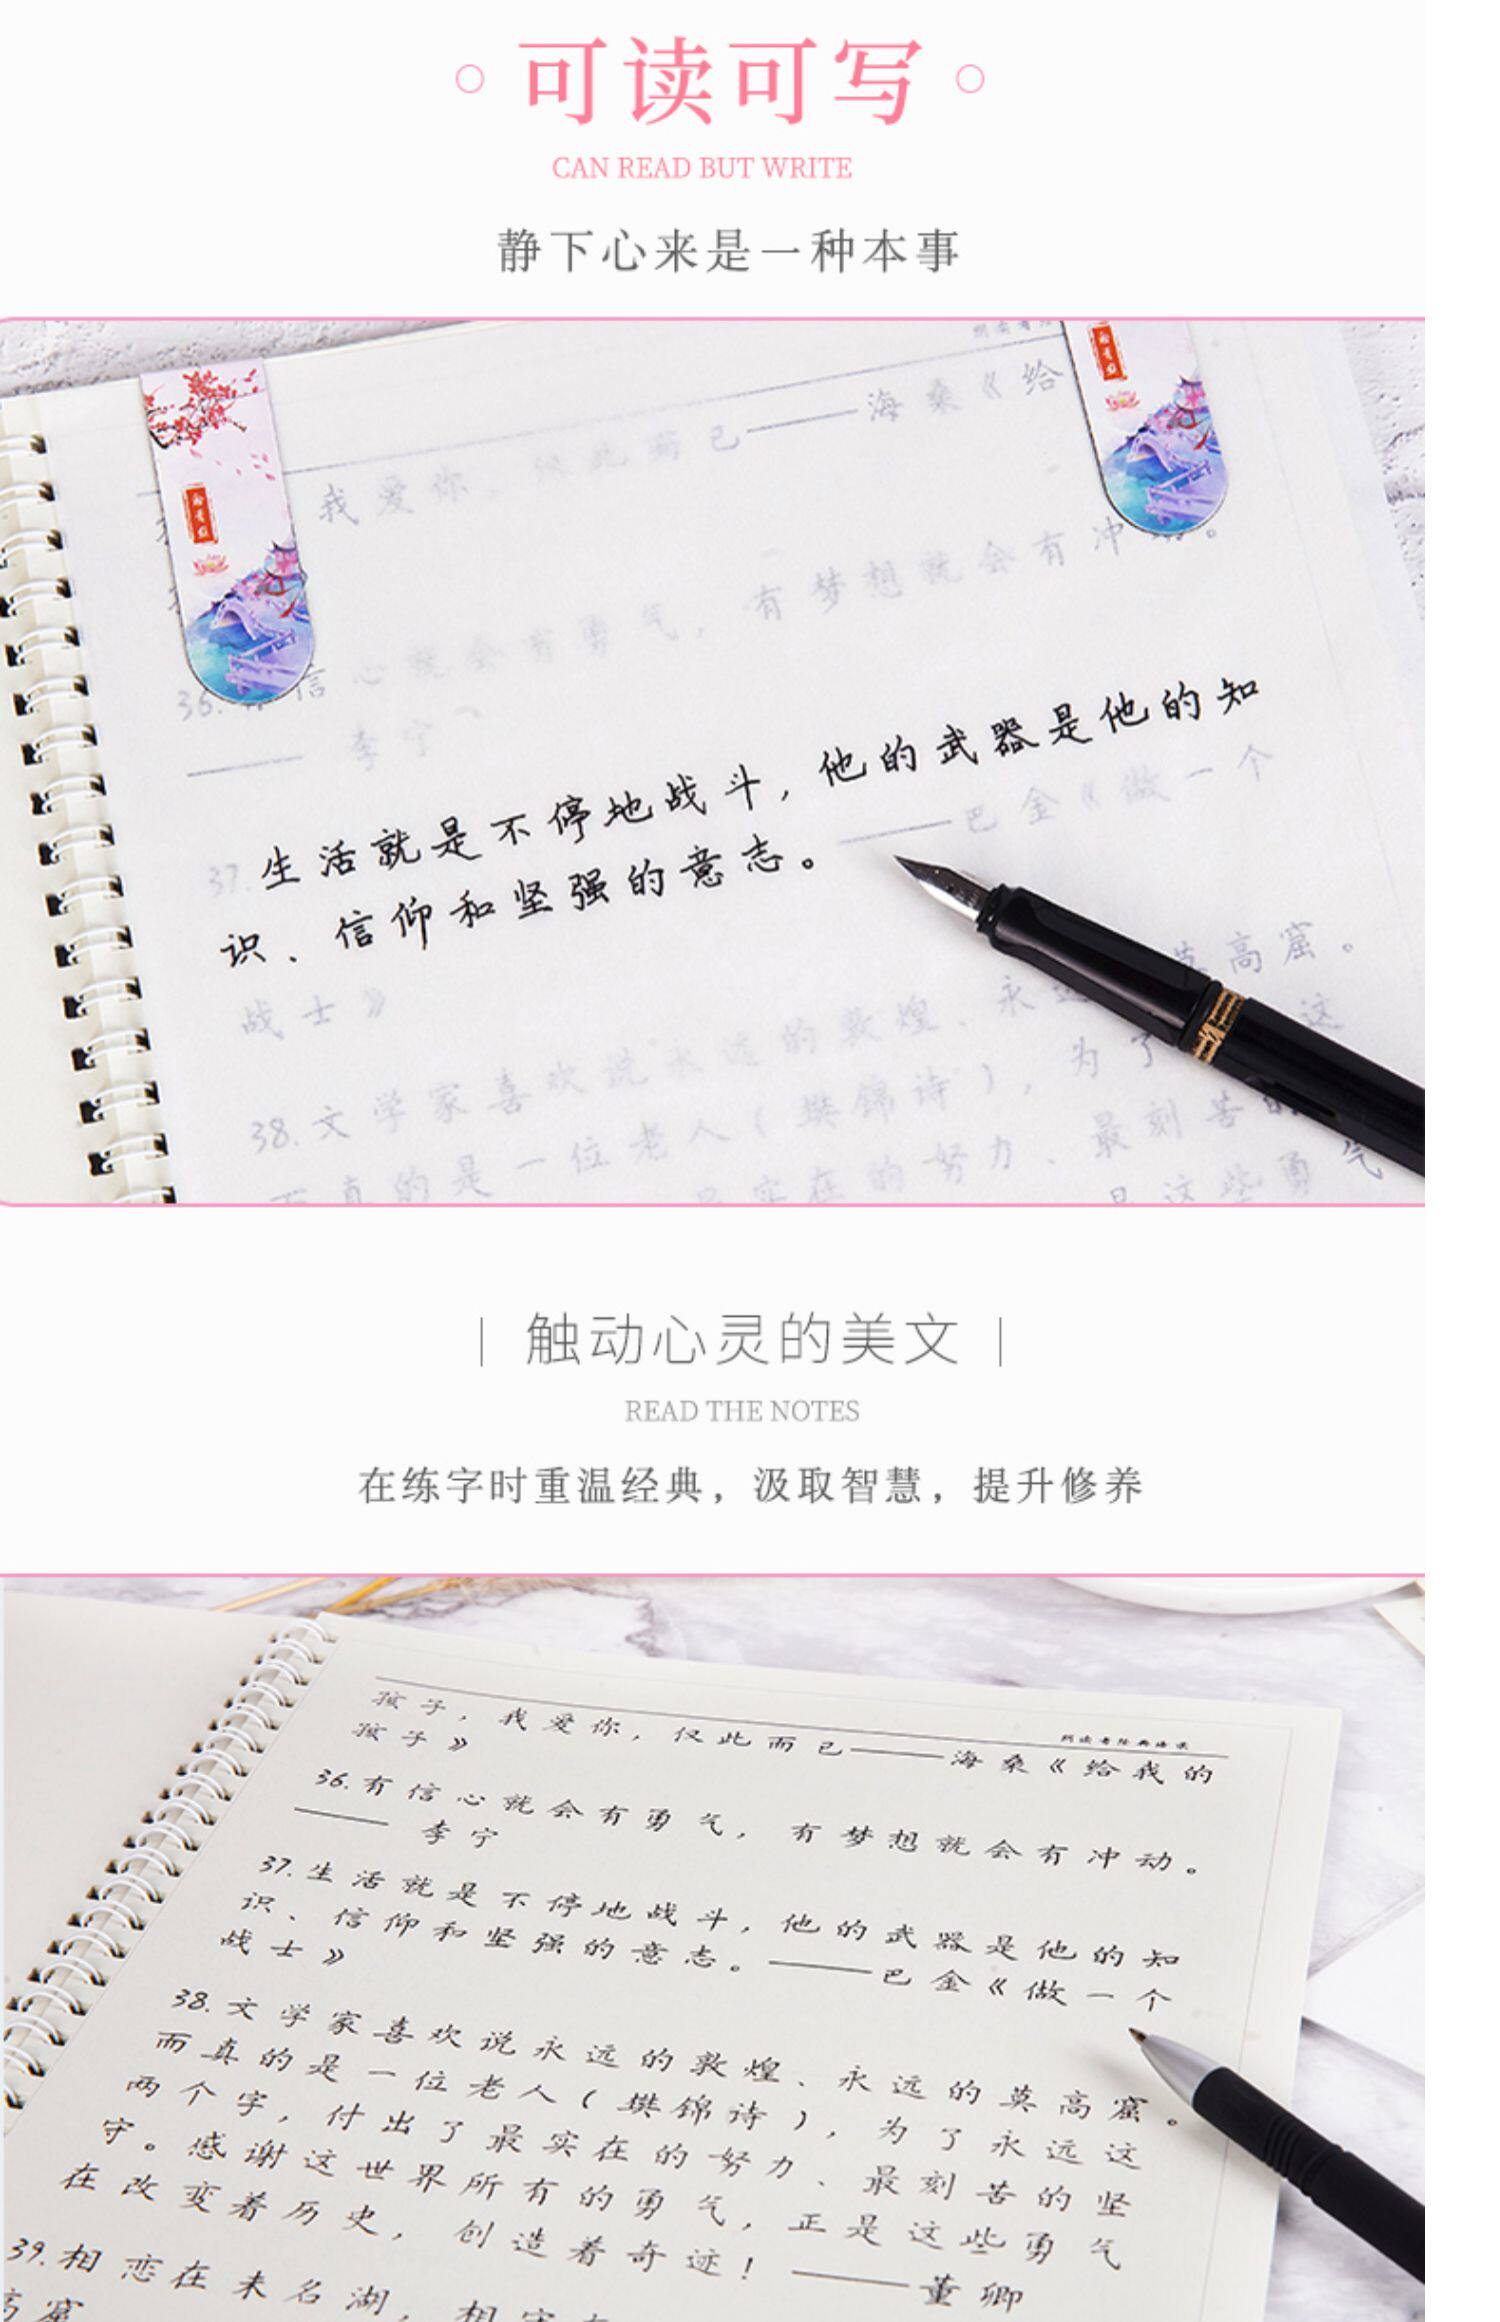 可读可写
CAN READ BUT WRITE
静下心来是一种本事
我爱你，仅此而已——海桑《给
36. 信心就会有勇气，有梦想就会有冲
——李宁
37. 生活就是不停地战斗，他的武器是他的知
识、信仰和坚强的意志。——巴金《做一个
战士》
38. 文学家喜欢说永远的敦煌、永远 莫高窟。
而真的是一位老人（樊锦诗），为了 这
最实在的努力、最刻苦的
是这些勇气
触动心灵的美文
READ THE NOTES
在练字时重温经典，汲取智慧，提升修养
朗读者经典语录
孩子，我爱你，仅此而已——海桑《给我的
孩子》
36. 有信心就会有勇气，有梦想就会有冲动。
——李宁
37. 生活就是不停地战斗，他的武器是他的知
识、信仰和坚强的意志。——巴金《做一个
战士》
38. 文学家喜欢说永远的敦煌、永远的莫高窟。
而真的是一位老人（樊锦诗），为了永远这
两个字，付出了最实在的努力、最刻苦的坚
守。感谢这世界所有的勇气，正是这些勇气
在改变着历史，创造着奇迹！——董卿
39. 相恋在未名湖，相守在
高窟